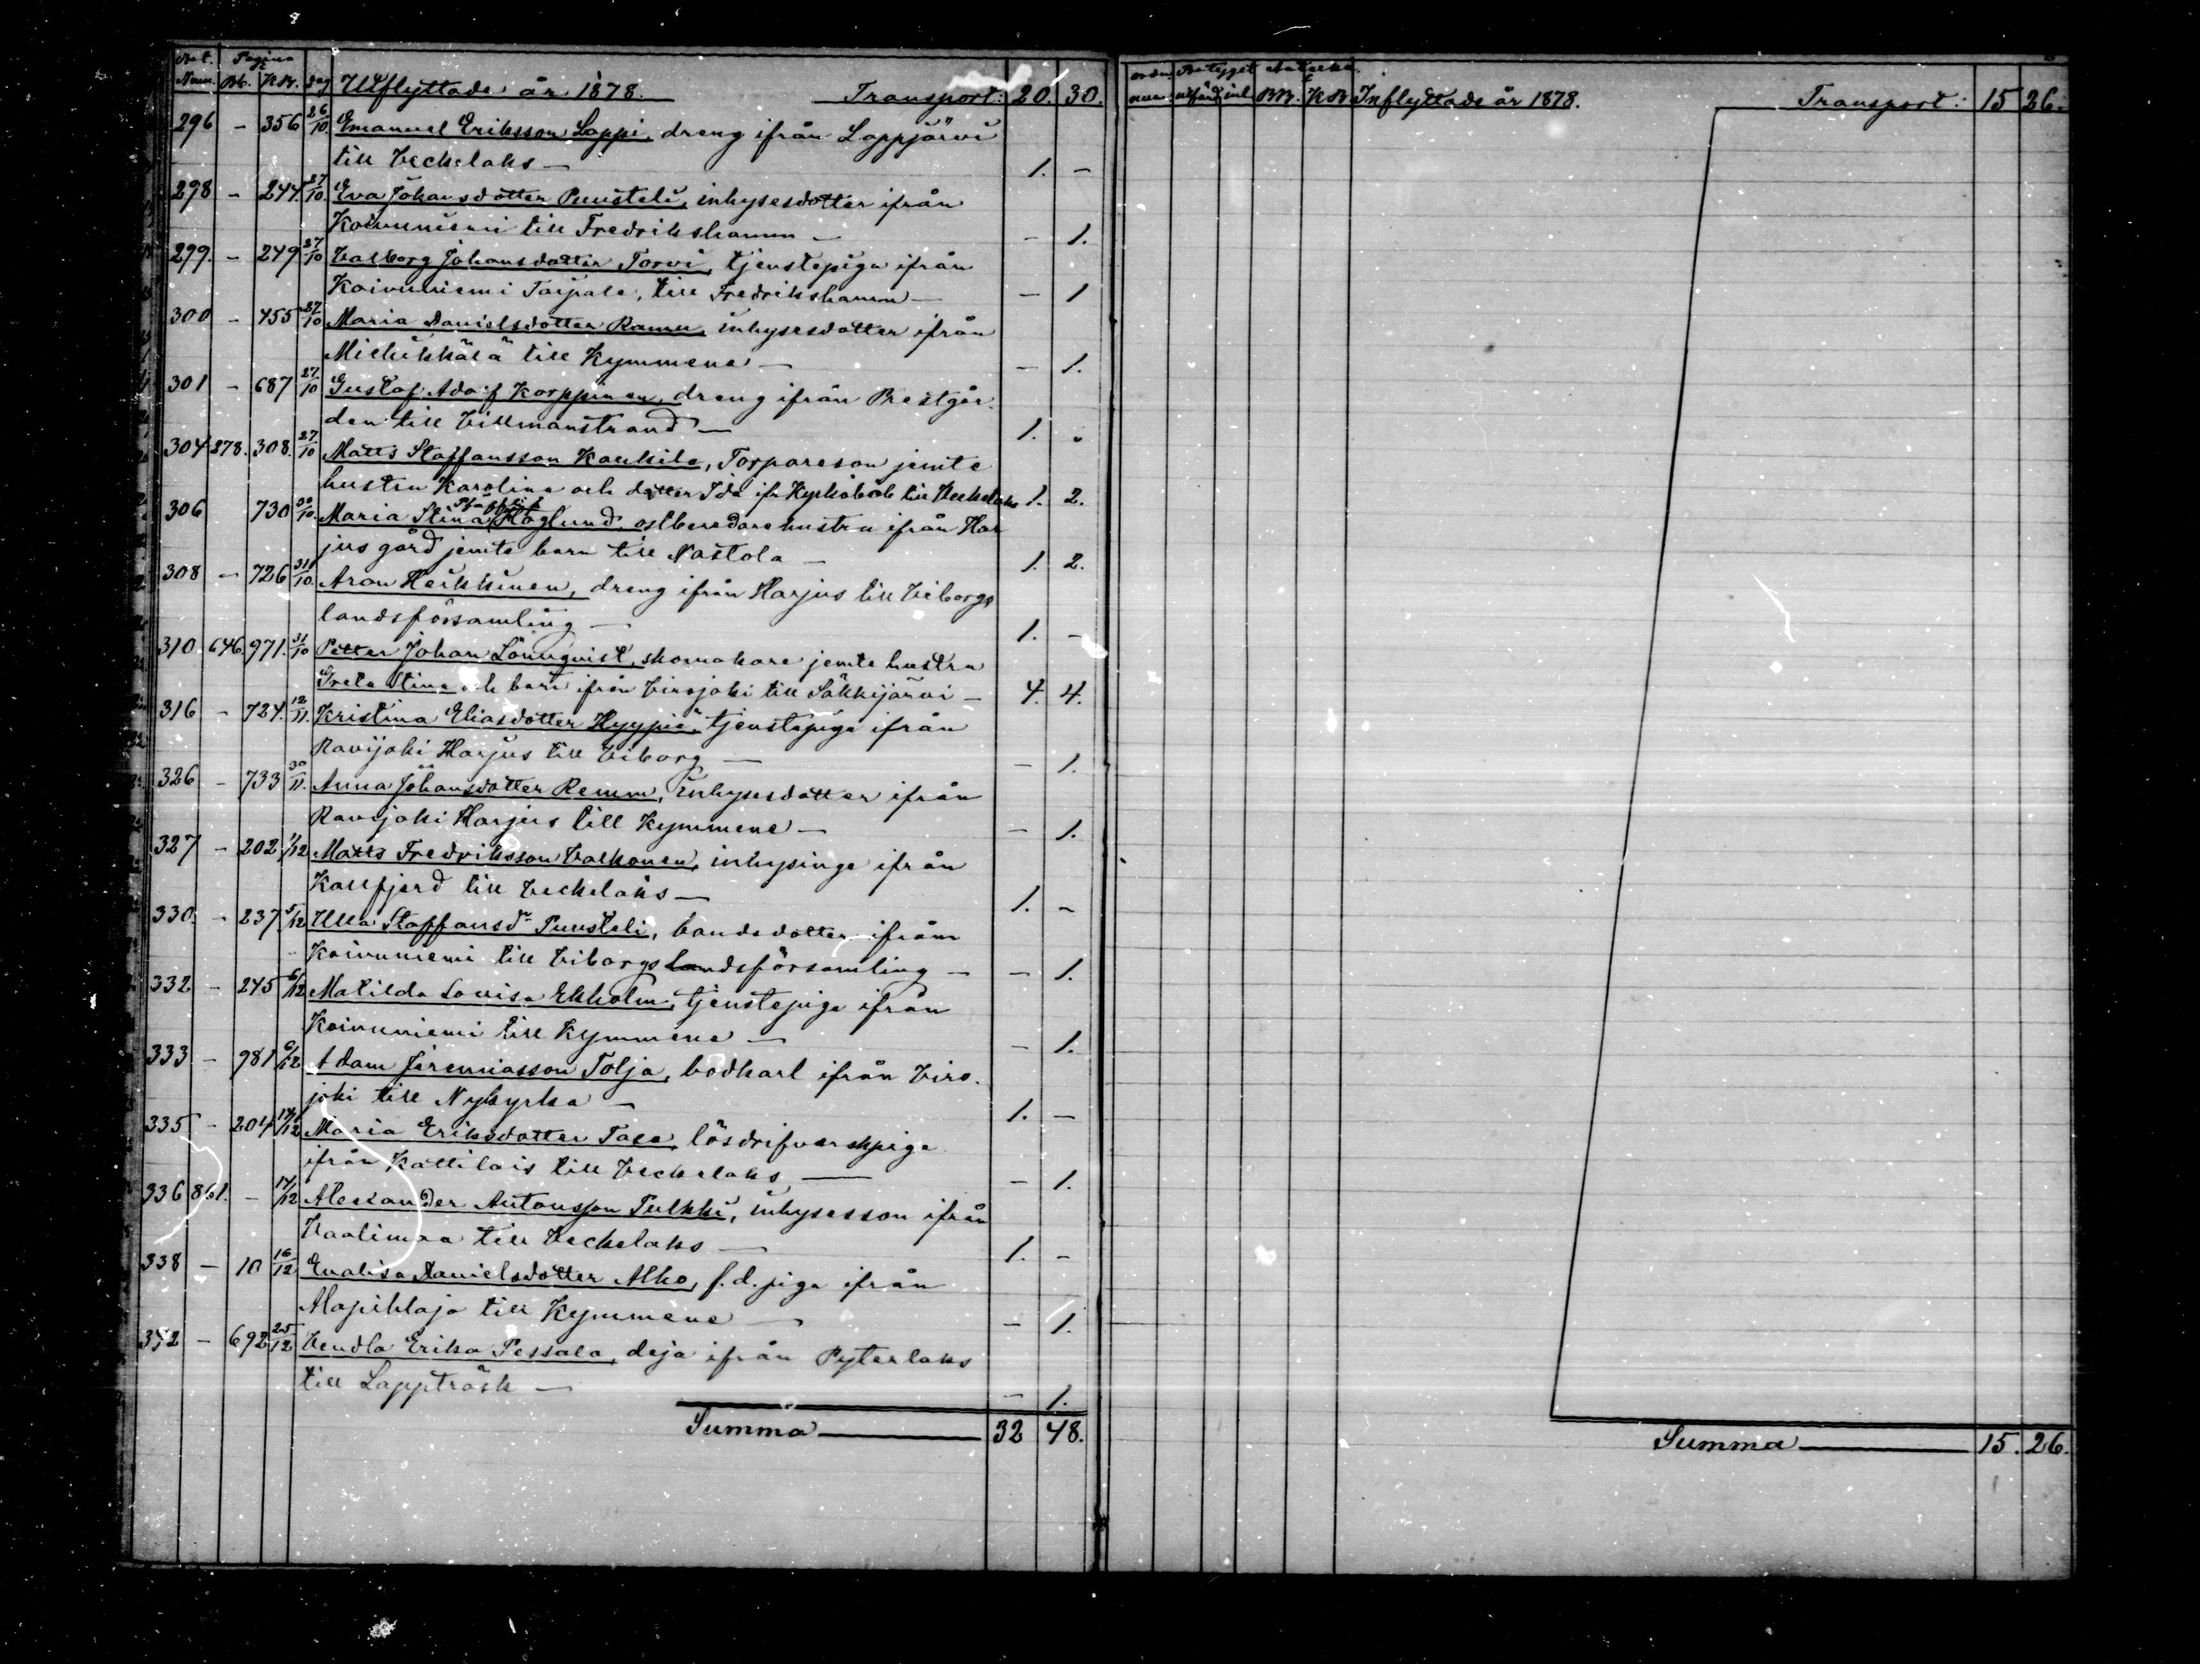 Bet. Pagina
Num. Bb. KB. dag Utflyttade år 1878. Transport: 20. 30.
296 - 356 26/10 Emanuel Eriksson Lappi, dreng ifrån Lappjärvi
till Veckelaks — 1. -
298 - 244. 27/10. Eva Johansdotter Puusteli, inhysesdotter ifrån
Koivuniemi till Fredrikshamn — - 1.
299. - 249 27/10 Valborg Johansdotter Torvi, tjenstepiga ifrån
Koivuniemi Taipale, till Fredrikshamn — - 1
300 - 455 27/10 Maria Danielsdotter Ramu, inhysesdotter ifrån
Miehikkälä till Kymmene — - 1.
301 - 687 27/10 Gustaf Adolf Korppinen, dreng ifrån Prestgår
den till Villmanstrand — 1. -
304 278. 308. 27/10 Matts Staffansson Kaukile, Torpareson jemte
hustru Karolina och dotter Ida ifr Kyrkoby till Veckelaks 1. 2.
306 730 30/10. Maria Stina Höglund, ostberedarehustru ifrån Har
jus gård jemte barn till Nastola — 1. 2.
308 - 726 31/10. Aron Heikkinen, dreng ifrån Harjus till Viborgs
landsförsamling — 1. -
310. 646. 971. 31/10 Petter Johan Lönnqvist, skomakare jemte hustru
Greta Stina och barn ifrån Virojoki till Säkkijärvi — 4. 4.
316 - 724. 12/11. Kristina Eliasdotter Hyypiä, tjenstepiga ifrån
Ravijoki Harjus till Viborg — - 1.
326 - 733 30/11. Anna Johansdotter Remm, inhysesdotter ifrån
Ravijoki Harjus till Kymmene — - 1.
327 - 202 1/12 Matts Fredriksson Valkonen, inhysinge ifrån
Kallfjerd till Veckelaks — 1. -
330. - 237 5/12 Ulla Staffansdr Puusteli, bondedotter ifrån
Koivuniemi till Viborgs landsförsamling — - 1.
332 - 245 6/12 Matilda Lovisa Ekholm, tjenstepiga ifrån
Koivuniemi till Kymmene — - 1.
333 - 981 6/12 Adam Jeremiasson Tolja, bodkarl ifrån Viro-
joki till Nykyrka — 1. -
335 - 204 14/12 Maria Eriksdotter Tase, lösdrifverskpiga
ifrån Kattilais till Veckelaks — - 1.
336 861. - 17/12 Alexander Antonsson Pulkki, inhysesson ifrån
Vaalimaa till Veckelaks — 1. -
338 - 10 16/12 Evalisa Danielsdotter Alho, f.d. piga ifrån
Alapihlaja till Kymmene — - 1.
342 - 692 25/12 Vendla Erika Pessala, deja ifrån Pyterlaks
till Lappträsk — - 1.
Summa — 32 48.
Betyget
utfärd inl BB. KB Inflyttade år 1878. Transport: 15 26.
Summa — 15. 26.